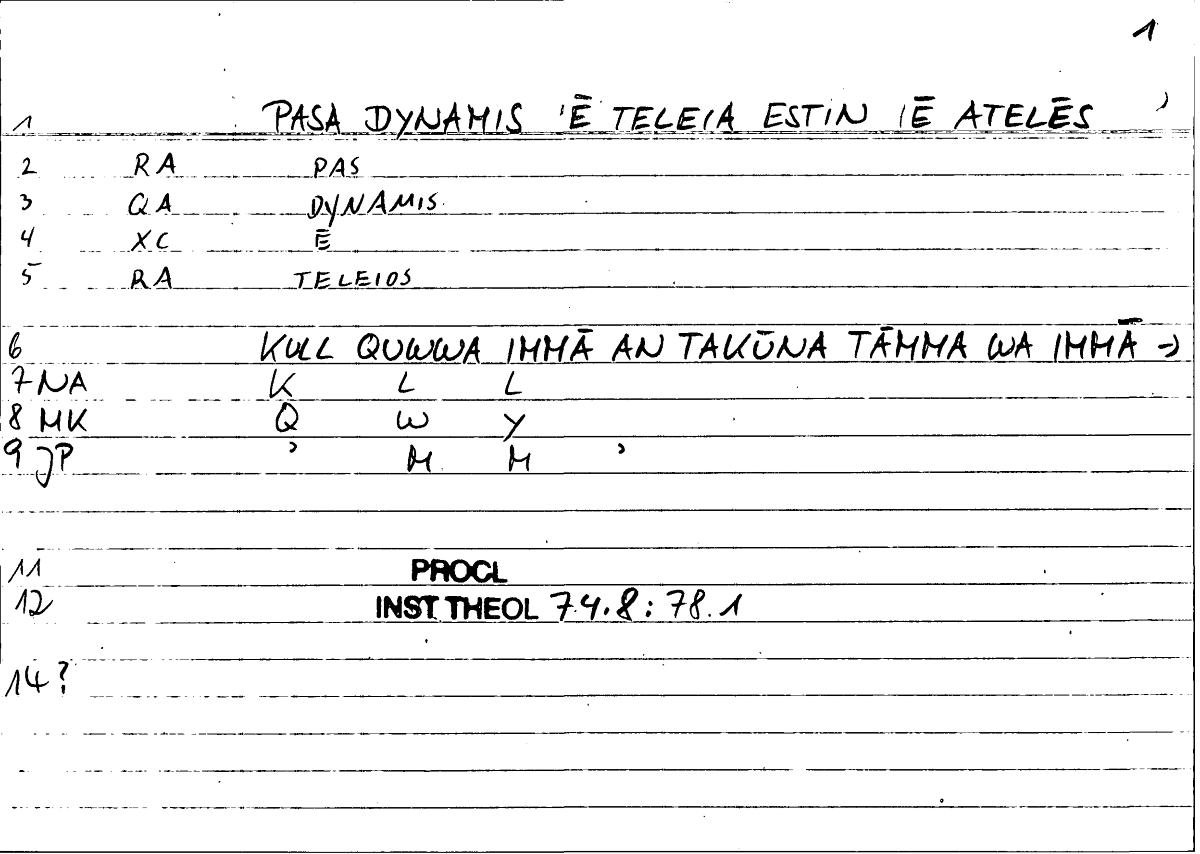 1
1 PASA DYNAMIS 'Ē TELEIA ESTIN 'Ē ATELĒS ,
2 RA PAS
3 QA DYNAMIS
4 XC Ē
5 RA TELEIOS
6 KULL QUWWA IMMĀ AN TAKŪNA TĀMMA WA IMMĀ →
7 NA K L L
8 MK Q W Y
9 JP ' M M '
11 PROCL
12 INST THEOL 74.8: 78.1
14 ?